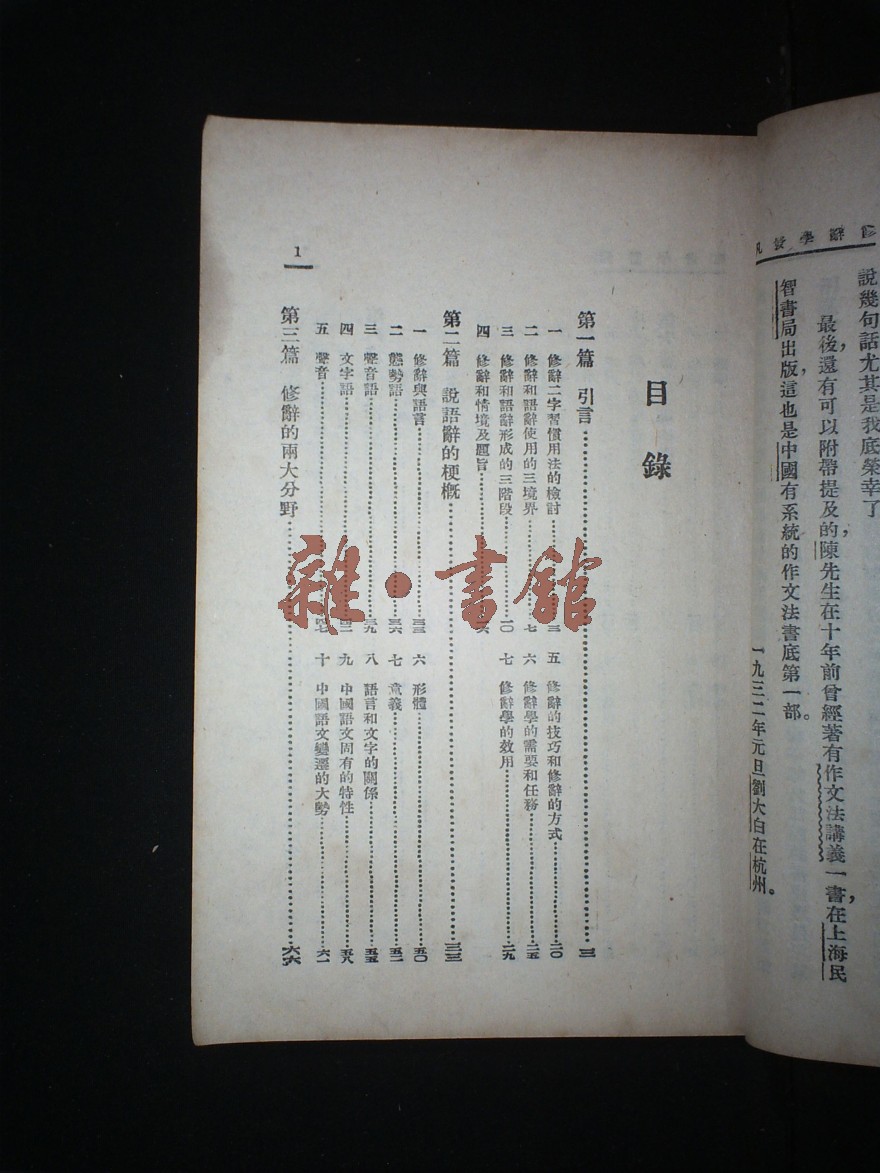 修辭學發凡
說幾句話尤其是我底榮幸了
最後，還有可以附帶提及的，陳先生在十年前曾經著有作文法講義一書，在上海民
智書局出版，這也是中國有系統的作文法書底第一部。
一九三二年元旦劉大白在杭州。
目錄
第一篇 引言……三
一 修辭二字習慣用法的檢討……三 五 修辭的技巧和修辭的方式……二〇
二 修辭和語辭使用的三境界……七 六 修辭學的需要和任務……二五
三 修辭和語辭形成的三階段……一〇 七 修辭學的效用……二九
四 修辭和情境及題旨……
第二篇 說語辭的梗概……三三
一 修辭與語言……三三 六 形體……五〇
二 態勢語……三六 七 意義……五二
三 聲音語……三九 八 語言和文字的關係……五五
四 文字語……四二 九 中國語文固有的特性……五八
五 聲音……四七 十 中國語文變遷的大勢……六一
第三篇 修辭的兩大分野……六六
1
雜·書館